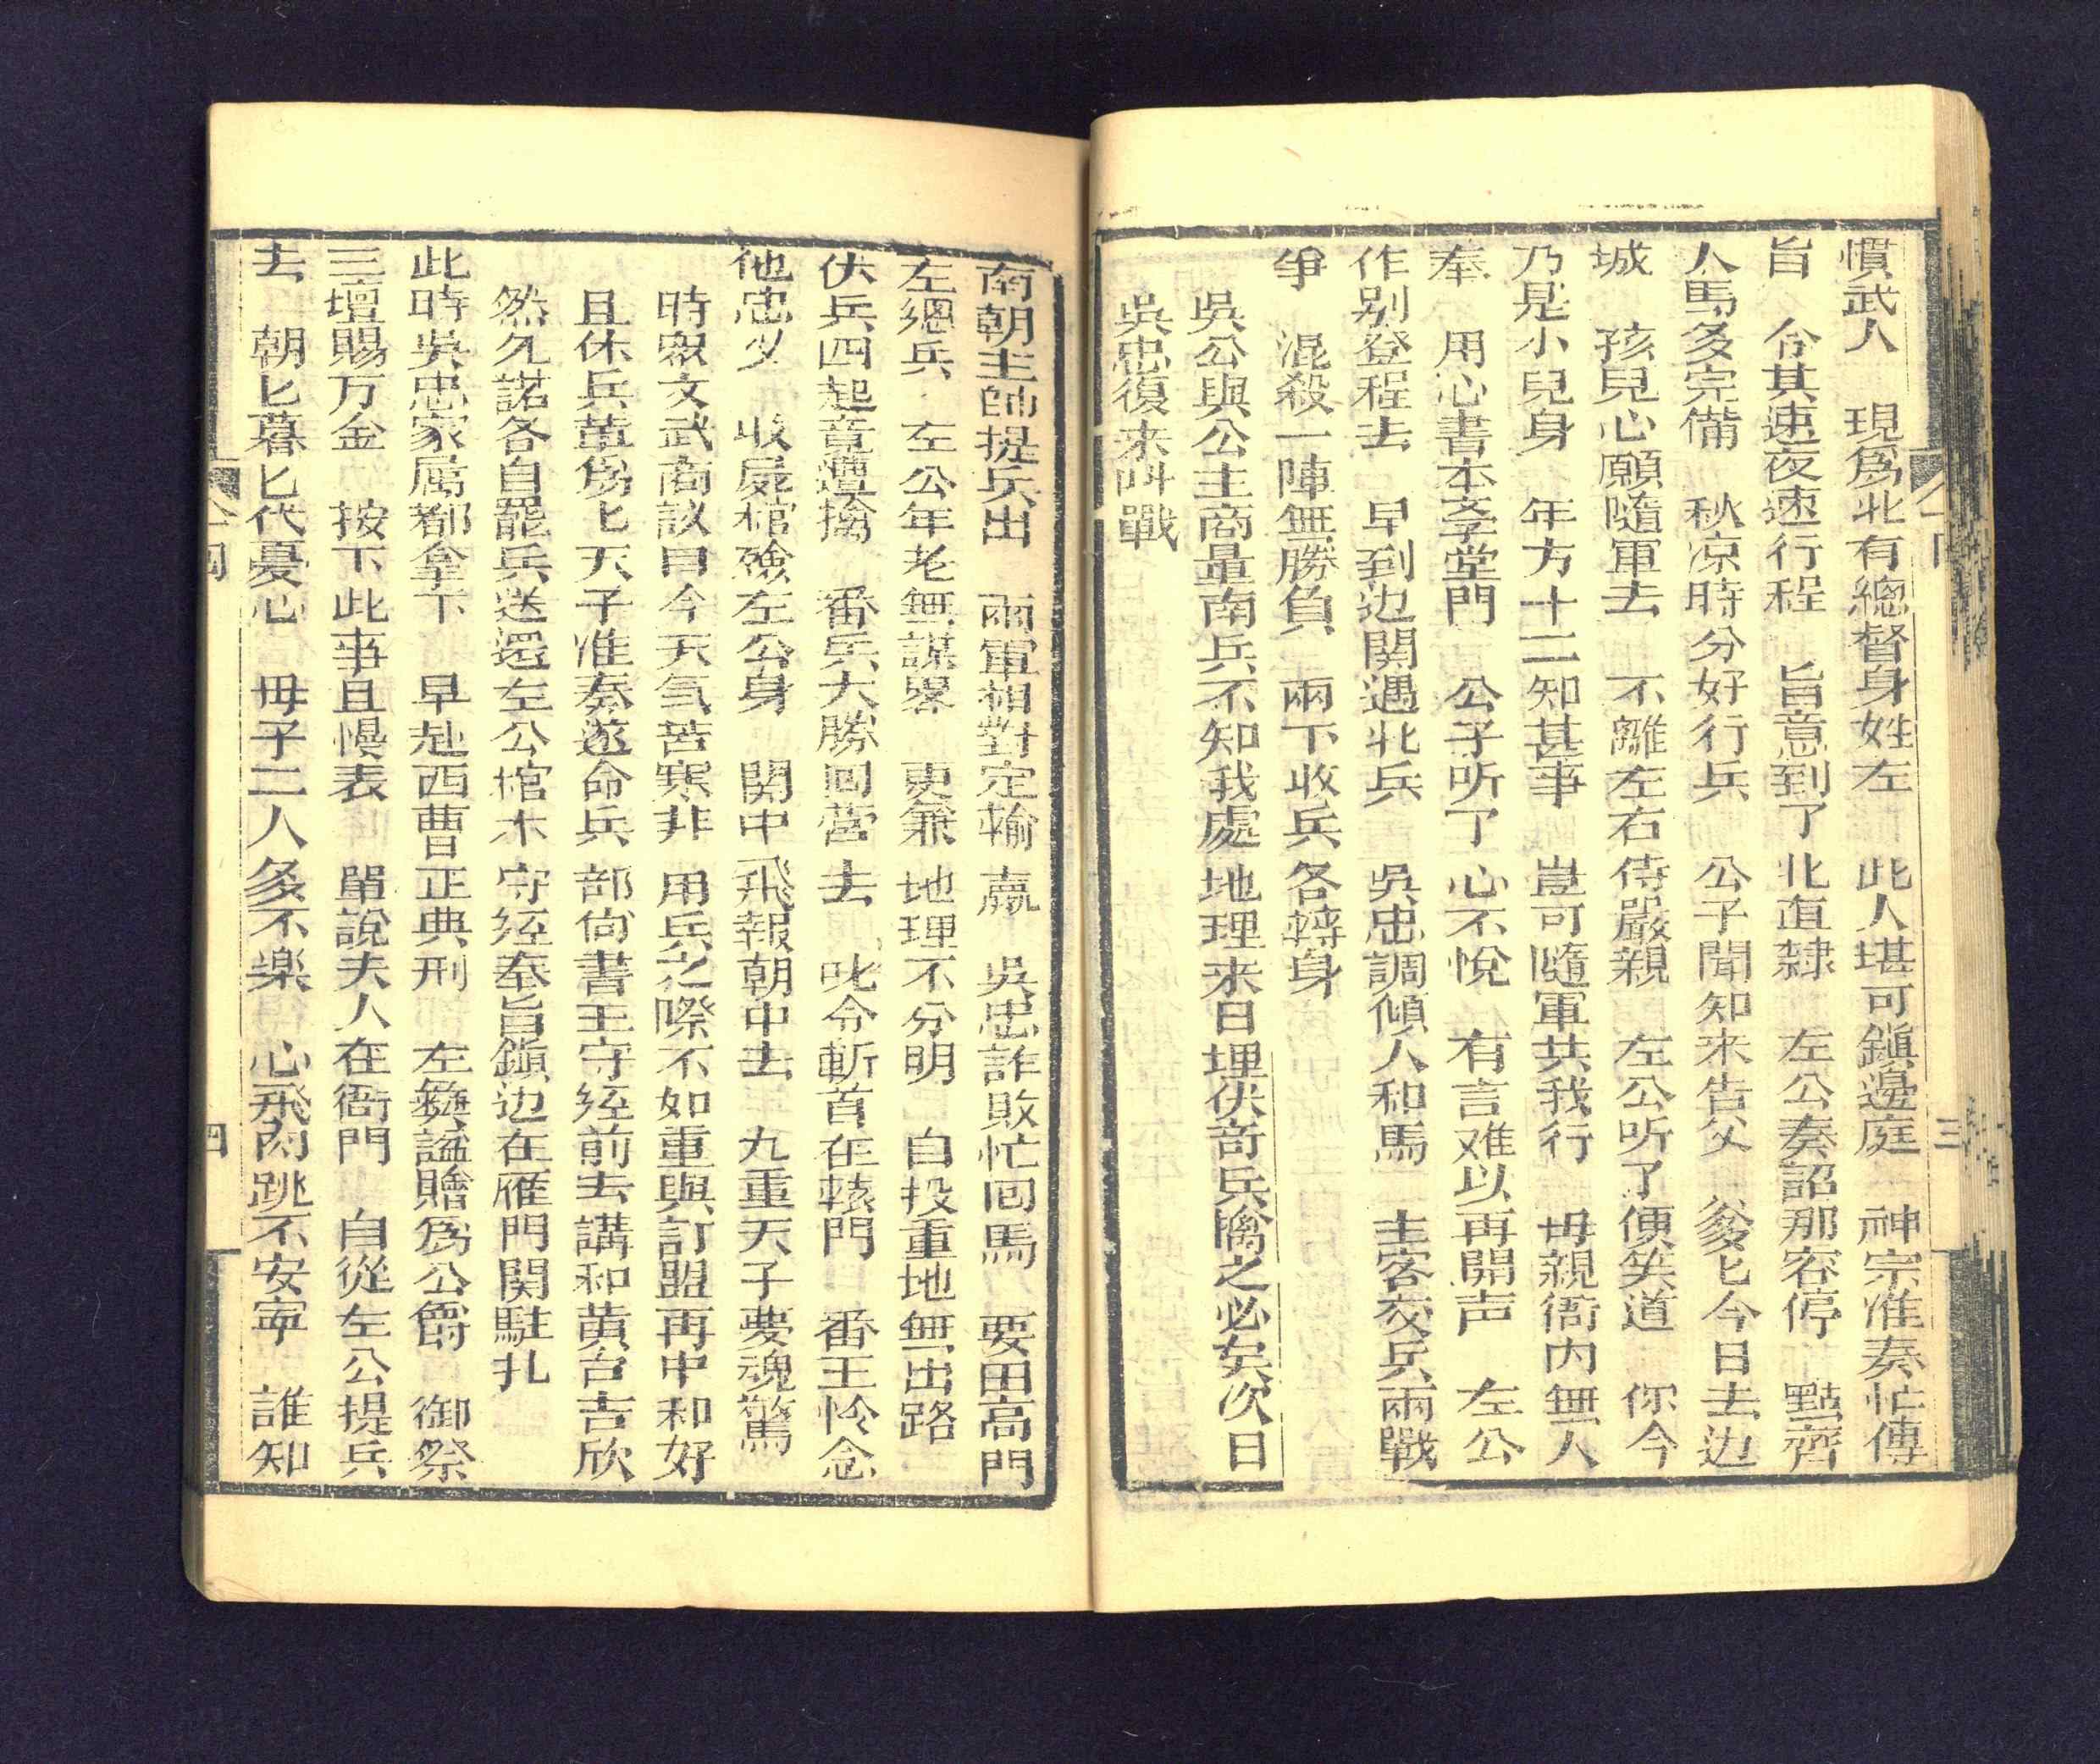 慣武人　現爲北有總督身姓左　此人堪可鎮邊庭　神宗准奏忙傳
旨　令其速夜速行程　旨意到了北直隸　左公奏詔那容停　點齊
人馬多完備　秋凉時分好行兵　公子聞知來告父　爹匕今日去边
城　孩兒心願隨軍去　不離左右侍嚴親　左公听了便笑道　你今
乃是小兒身　年方十二知甚事　豈可隨軍共我行　毋親衙内無人
奉　用心書本孝堂門　公子听了心不悅　有言难以再開声　左公
作别登程去　早到边関遇北兵　吳忠調傾人和馬　主客交兵兩戰
爭　混殺一陣無勝負　兩下收兵各轉身
吳公與公主商量南兵不知我處地理来日埋伏奇兵擒之必矣次日
吳忠復来呌戰
三
南朝主帥提兵出　兩軍相對定輸贏　吳忠詐敗忙囘馬　要田高門
左總兵　左公年老無謀畧　更兼地理不分明　自投重地無出路
伏兵四起竟遭擒　番兵大勝回營去　叱令斬首在轅門　番王怜念
他忠义　收屍棺殮左公身　関中飛報朝中去　九重天子夢魂驚
時衆文武商議曰今天氣苦寒非用兵之際不如重與訂盟再申和好
且休兵革爲匕天子准奏遂命兵部尙書王守経前去講和黄台吉欣
然允諾各自罷兵送還左公棺木守経奉旨鎮边在雁門関駐扎
此時吳忠家属都拿下　早赴西曹正典刑　左彝謚贈爲公爵　御祭
三壇賜万金　按下此事且慢表　單說夫人在衙門　自從左公提兵
去　朝匕暮匕代憂心　毋子二人多不楽　心飛肉跳不安寧　誰知
四